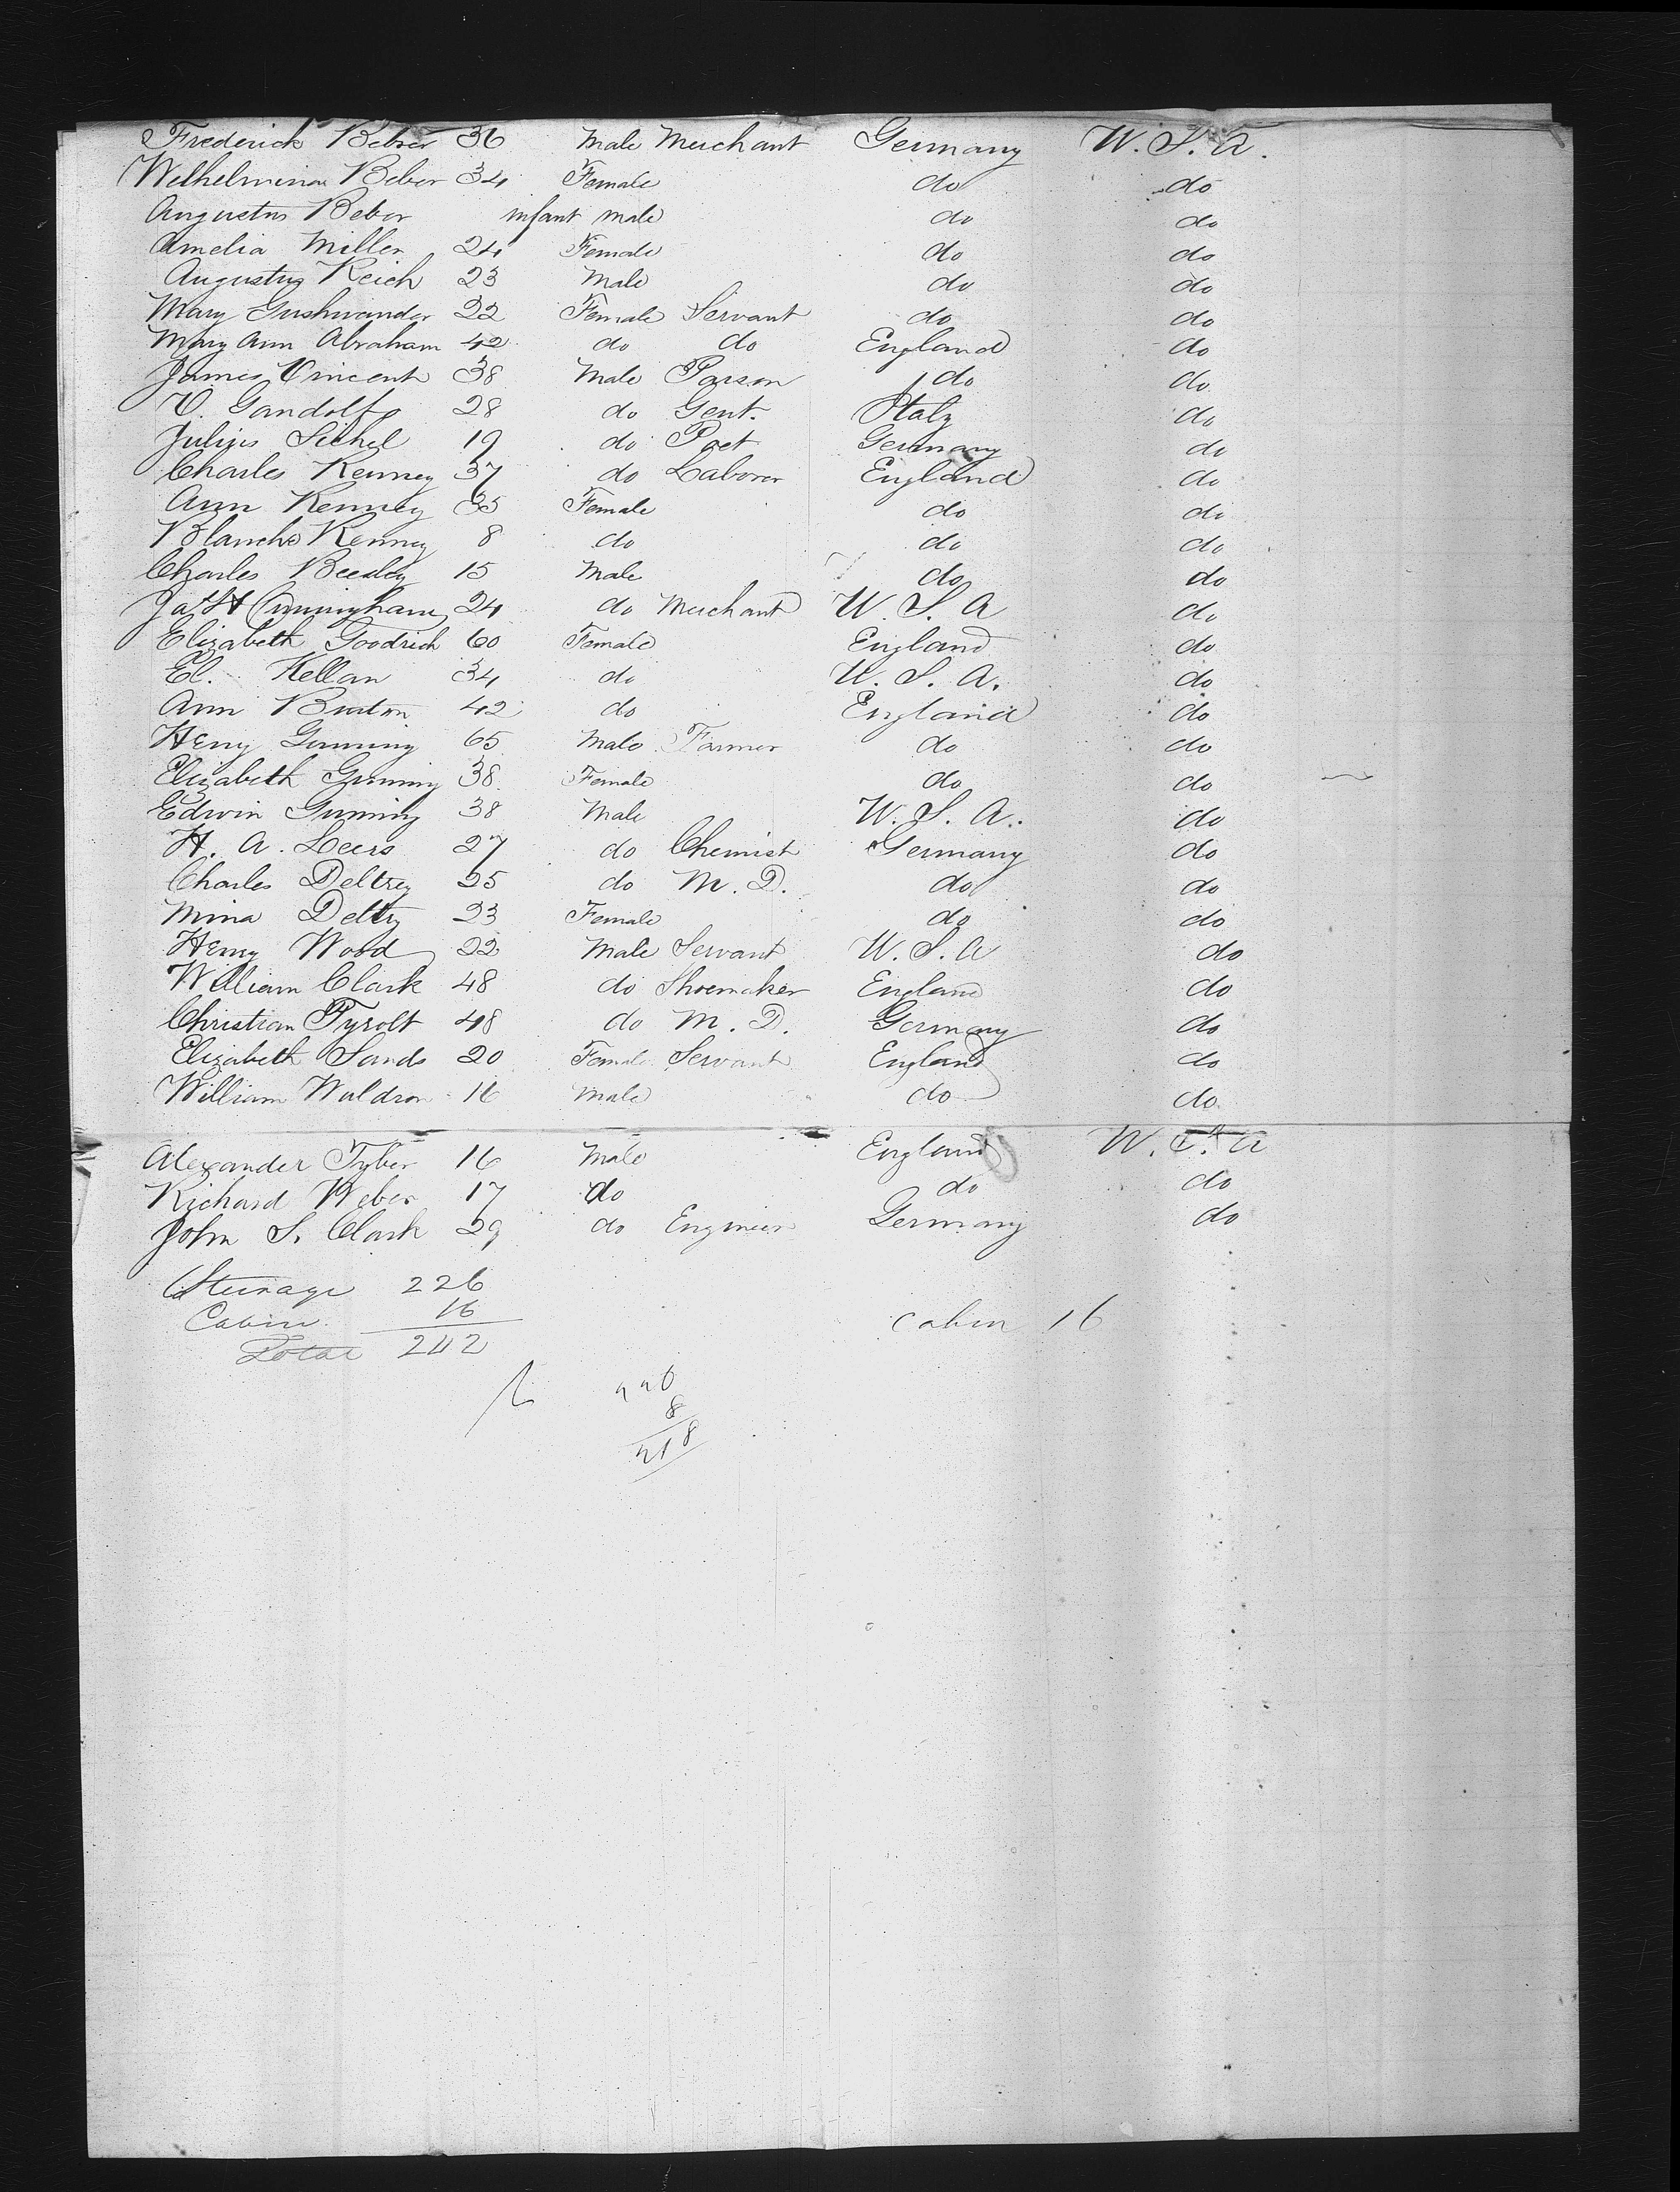 Frederick Beber 36 Male Merchant Germany U. S. A.
Wilhelmina Beber 34 Female do do
Augustus Beber infant male do do
Amelia Miller 24 Female do do
Augustus Reich 23 Male do do
Mary Gushwander 22 Female Servant do do
Mary Ann Abraham 42 do do England do
James Vincent 38 Male Parson do do
V. Gandolfo 28 do Gent. Italy do
Julius Sichel 19 do Poet Germany do
Charles Kenney 37 do Laborer England do
Ann Kenney 35 Female do do
Blanche Kenney 8 do do do
Charles Beesley 15 Male do do
Jas H Cunningham 24 do Merchant U. S. A do
Elizabeth Goodrich 60 Female England do
El. Kellan 34 do U. S. A. do
Ann Burton 42 do England do
Heny Gunning 65 Male Farmer do do
Elizabeth Gunning 38 Female do do
Edwin Gunning 38 Male U. S. A. do
H. A. Leers 27 do Chemist Germany do
Charles Deltrey 25 do M. D. do do
Mina Deltry 23 Female do do
Henry Wood 22 Male Servant U. S. A do
William Clark 48 do Shoemaker England do
Christian Tyrolt 48 do M. D. Germany do
Elizabeth Sands 20 Female Servant England do
William Waldron 16 Male do do
Alexander Tyber 16 Male England U. S. A
Richard Weber 17 do do do
John S. Clark 29 do Engineer Germany do
Steerage 226
Cabin 16 Cabin 16
Total 242
226
8
218